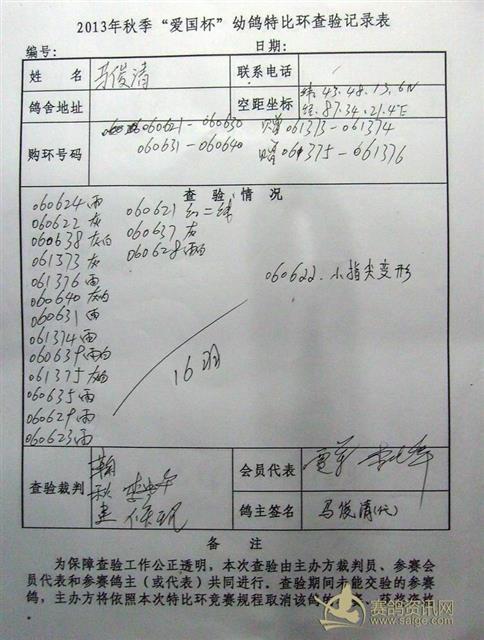 2013年秋季“爱国杯”幼鸽特比环查验记录表
编号： 日期：
姓名 马俊清 联系电话
鸽舍地址 空距坐标 纬.43.48.13.6N
经.87.34.21.4E
购环号码 060621-060630 赠061373-061374
060631-060640 赠061375-061376
查验情况
060624雨
060622灰 060621红二线
060638灰白 060637灰
061373灰 060628雨白
061376雨
060640灰白 060622.小指尖变形
060631雨
061374雨
060639雨白
061375灰白 16羽
060635雨
060629雨
060623雨
查验裁判 会员代表
鸽主签名 马俊清(代)
备注
为保障查验工作公正透明，本次查验由主办方裁判员、参赛会
员代表和参赛鸽主（或代表）共同进行。查验期间未能交验的参赛
鸽，主办方将依照本次特比环竞赛规程取消该鸽的
赛鸽资讯网
www.saige.com